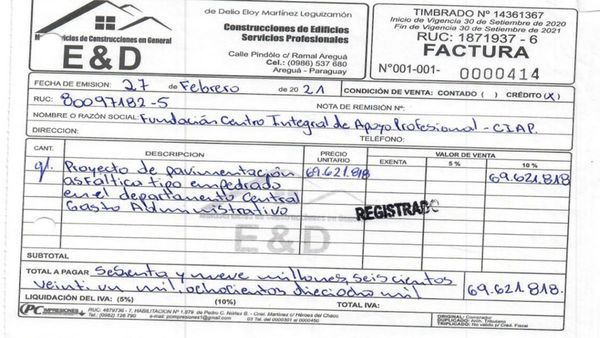 de Delio Eloy Martínez Leguizamón
Servicios de Construcciones en General
E&D
Construcciones de Edificios
Servicios Profesionales
Calle Pindólo c/ Ramal Areguá
Cel.: (0986) 537 680
Areguá - Paraguay
TIMBRADO Nº 14361367
Inicio de Vigencia 30 de Setiembre de 2020
Fin de Vigencia 30 de Setiembre de 2021
RUC: 1871937 - 6
FACTURA
Nº001-001- 0000414
FECHA DE EMISION: 27 de Febrero de 2021 CONDICIÓN DE VENTA: CONTADO ( ) CRÉDITO (X)
RUC: 80097182-5 NOTA DE REMISIÓN Nº:
NOMBRE O RAZÓN SOCIAL: Fundación Centro Integral de Apoyo Profesional - CIAP.
DIRECCION: TELÉFONO:
CANT. DESCRIPCION PRECIO UNITARIO VALOR DE VENTA
EXENTA 5 % 10 %
g/. Proyecto de pavimentación 69.621.818 69.621.818
asfáltica tipo empedrado
en el departamento Central
Gasto Administrativo
REGISTRADO
E&D
SUBTOTAL
TOTAL A PAGAR sesenta y nueve millones, seis cientos
veinti un mil, ochocientos dieciocho mil 69.621.818.
LIQUIDACIÓN DEL IVA: (5%) (10%) TOTAL IVA:
PC IMPRESIONES
RUC: 4879736 - 7, HABILITACION Nº 1.979 de Pedro C. Núñez B. - Gral. Martínez c/ Héroes del Chaco
Tel.: (0982) 126 790 e-mail: pcimpresiones1@gmail.com 03 Tel. del 0000301 al 0000450
ORIGINAL: Comprador
DUPLICADO: Arch. Tributario
TRIPLICADO: No válido p/ Créd. Fiscal